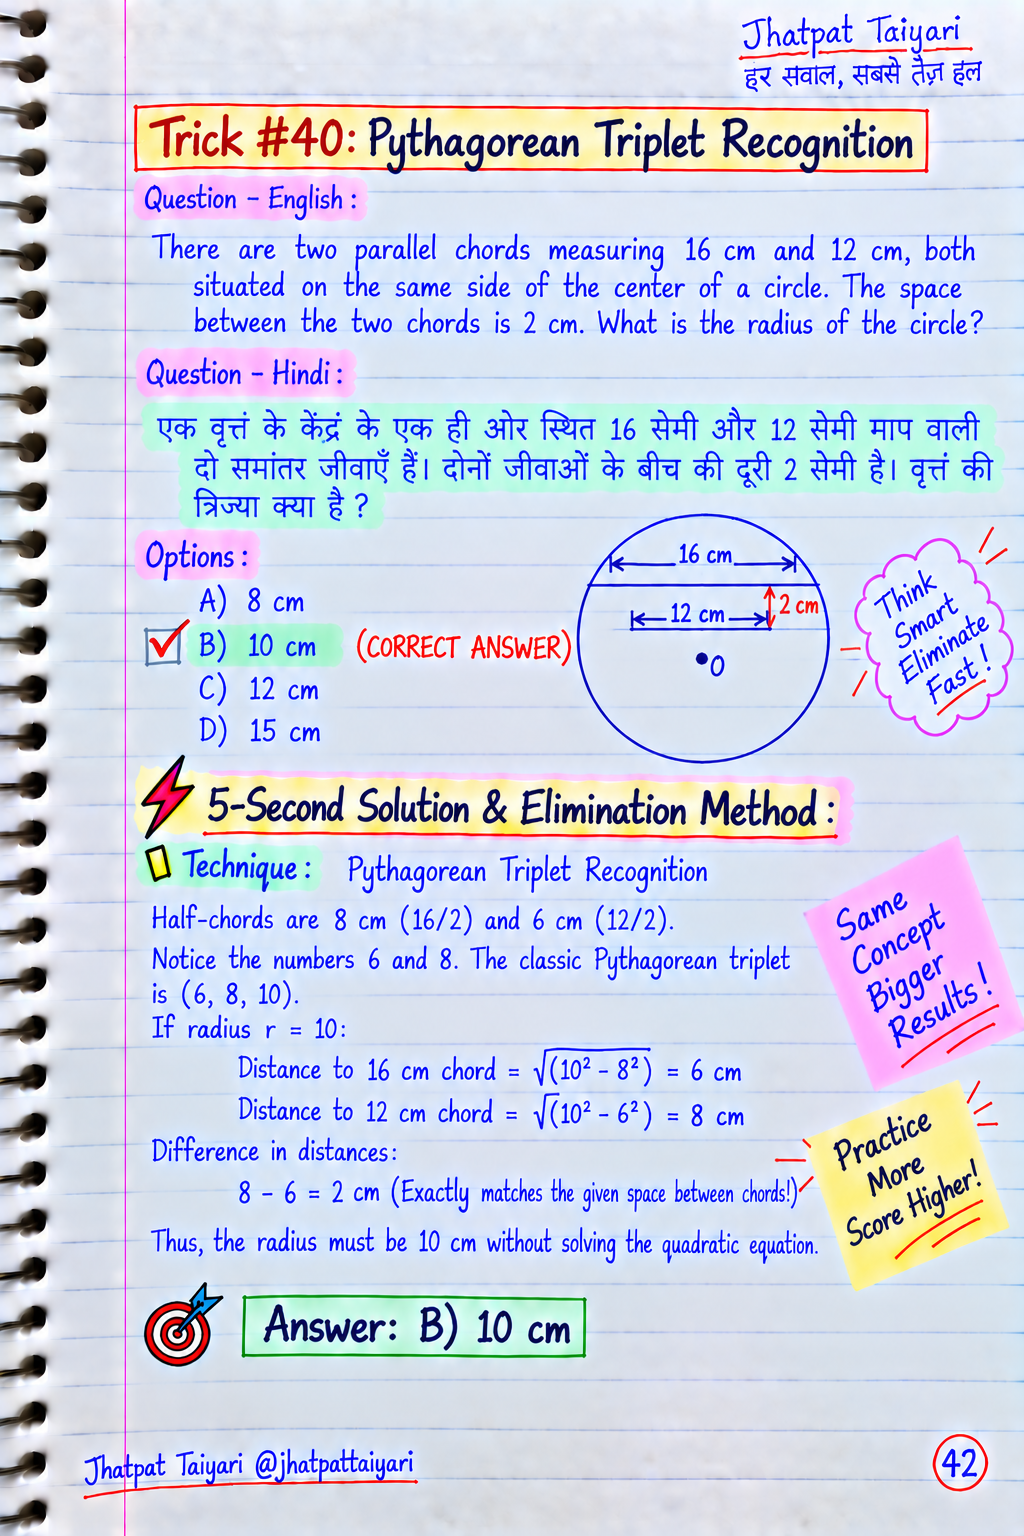 Jhatpat Taiyari
हर सवाल, सबसे तेज़ हल
Trick #40: Pythagorean Triplet Recognition
Question – English :
There are two parallel chords measuring 16 cm and 12 cm, both
situated on the same side of the center of a circle. The space
between the two chords is 2 cm. What is the radius of the circle?
Question – Hindi :
एक वृत्तं के केंद्रं के एक ही ओर स्थित 16 सेमी और 12 सेमी माप वाली
दो समांतर जीवाएँ हैं। दोनों जीवाओं के बीच की दूरी 2 सेमी है। वृत्तं की
त्रिज्या क्या है ?
Options :
A) 8 cm
B) 10 cm (CORRECT ANSWER)
C) 12 cm
D) 15 cm
16 cm
12 cm
2 cm
O
Think
Smart
Eliminate
Fast !
5-Second Solution & Elimination Method :
Technique : Pythagorean Triplet Recognition
Half-chords are 8 cm (16/2) and 6 cm (12/2).
Notice the numbers 6 and 8. The classic Pythagorean triplet
is (6, 8, 10).
If radius r = 10:
Distance to 16 cm chord = √(10² – 8²) = 6 cm
Distance to 12 cm chord = √(10² – 6²) = 8 cm
Difference in distances:
8 – 6 = 2 cm (Exactly matches the given space between chords!)
Thus, the radius must be 10 cm without solving the quadratic equation.
Same
Concept
Bigger
Results !
Practice
More
Score Higher!
Answer: B) 10 cm
Jhatpat Taiyari @jhatpattaiyari
42